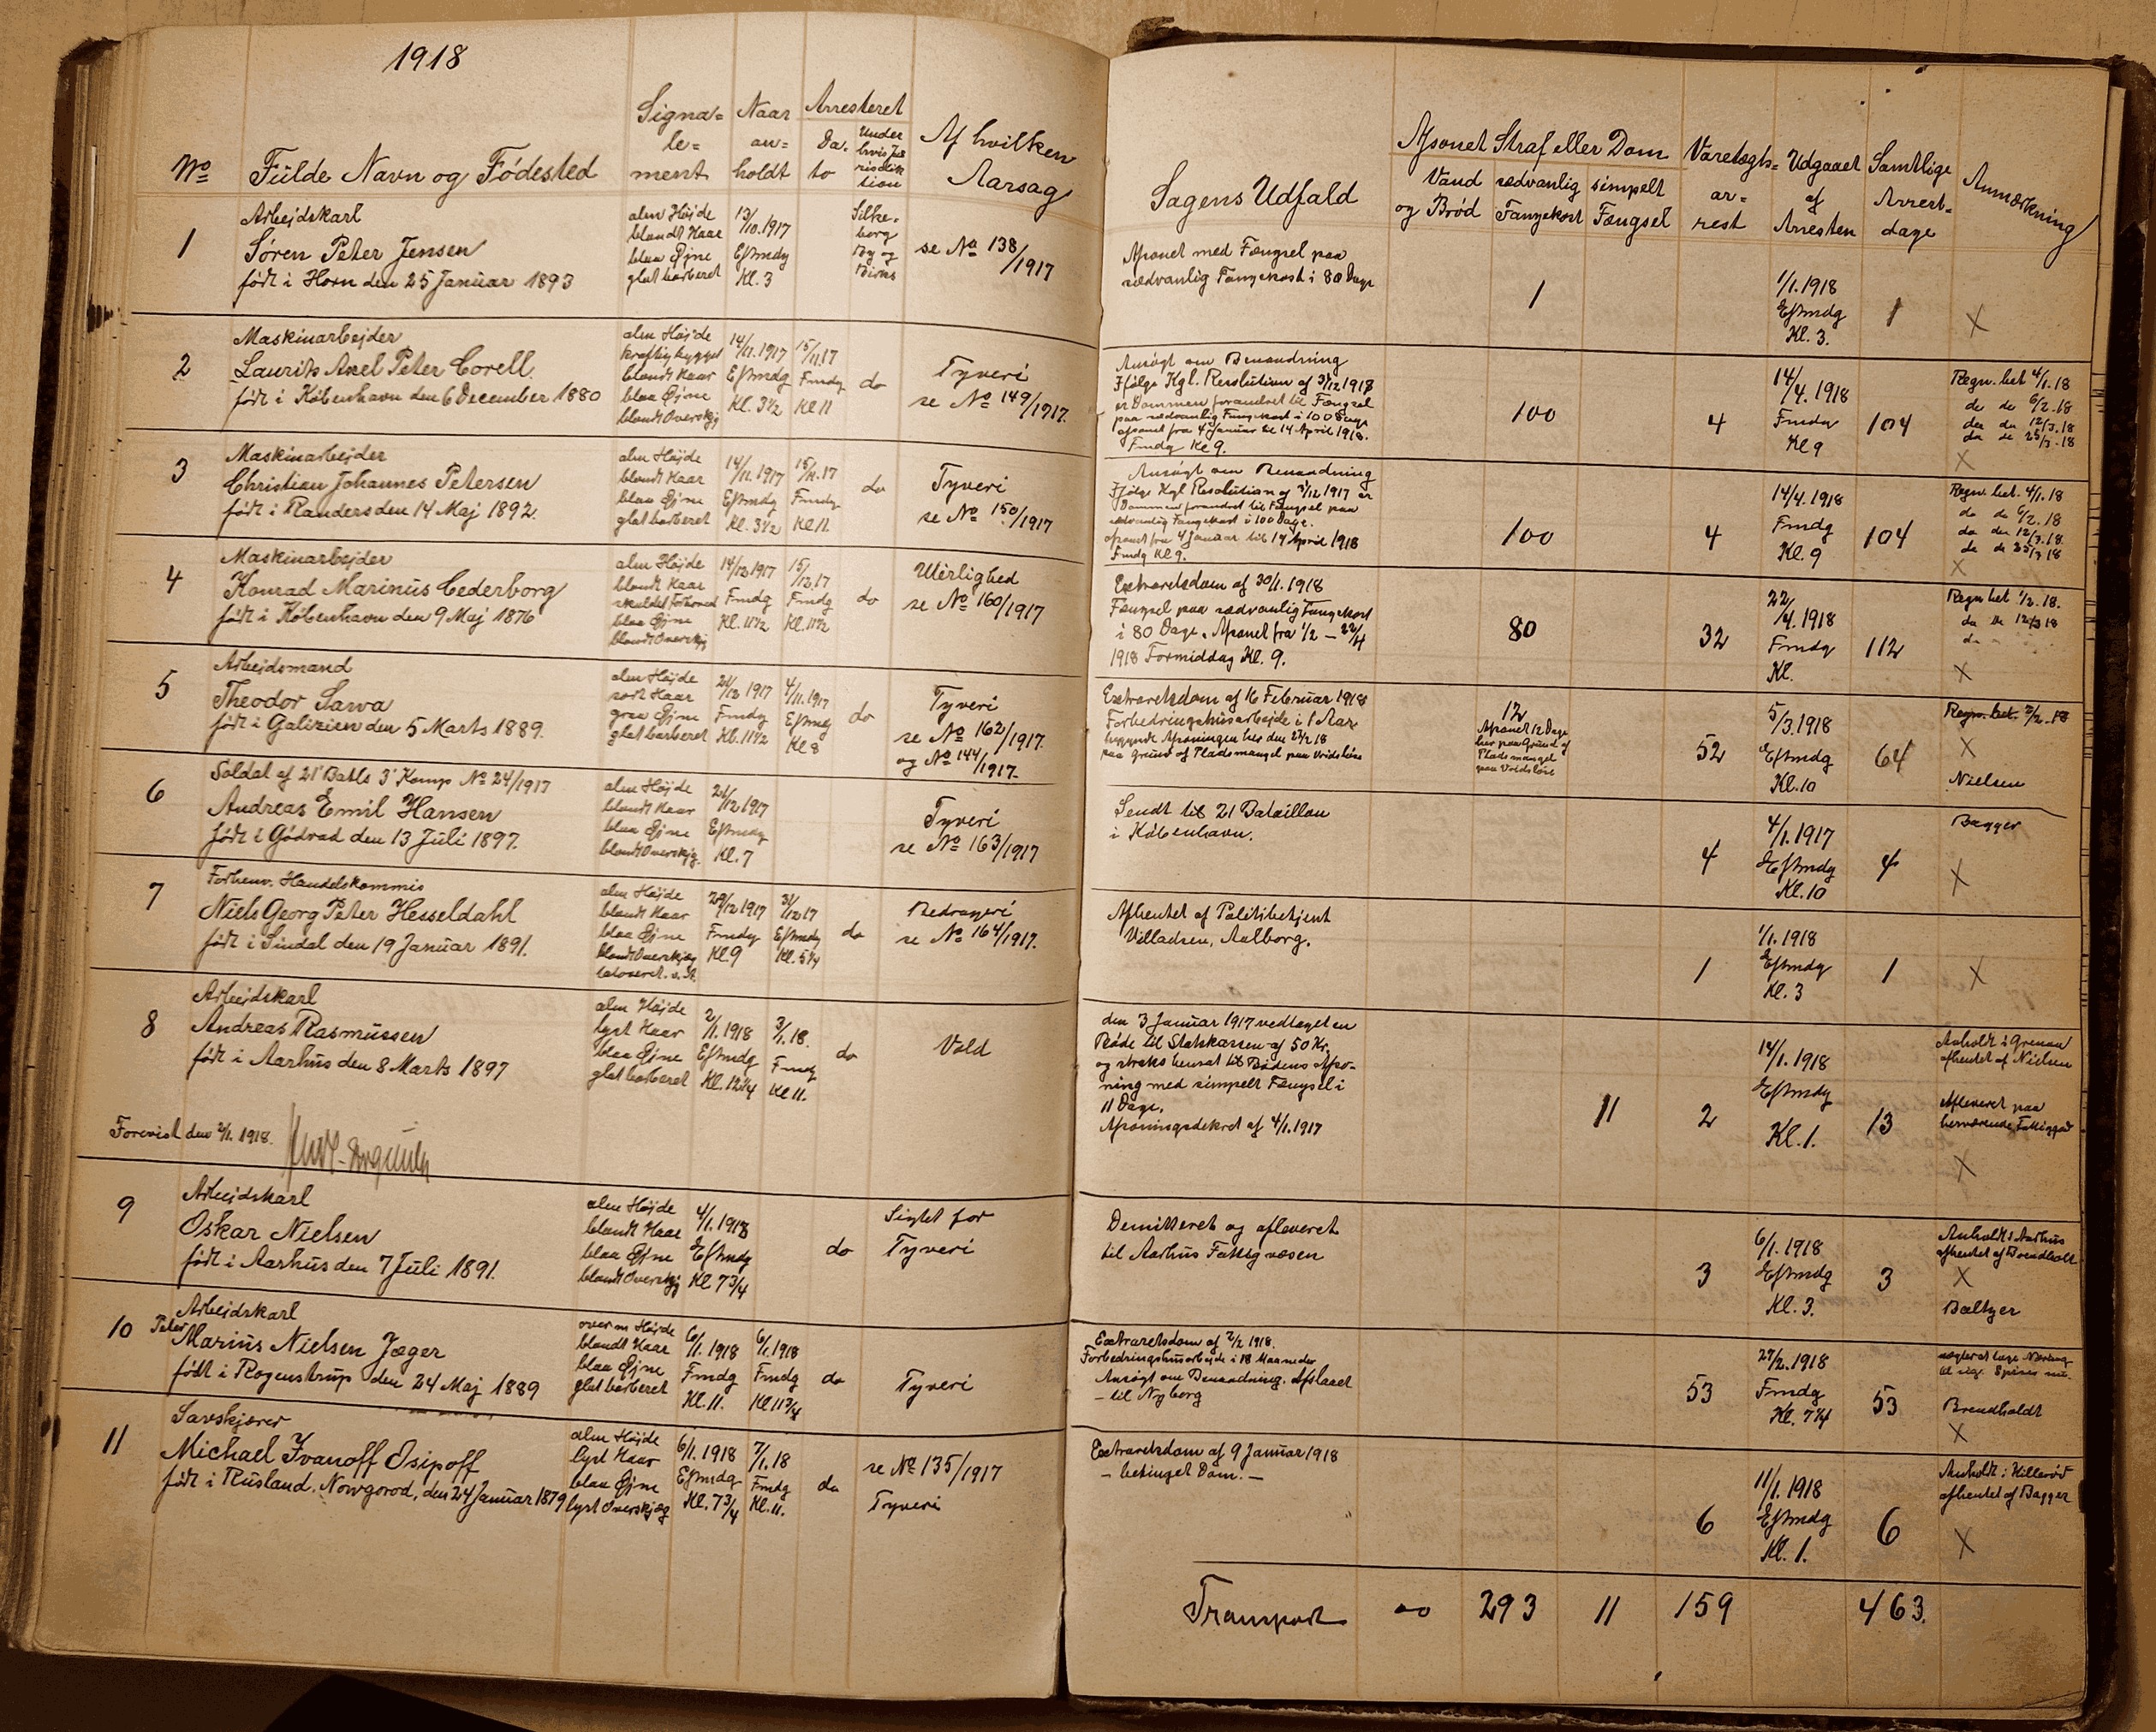 1918
No Fulde Navn og Fødested
Signa=
le=
ment
Naar
an=
holdt
Arresteret
Da=
to
Under
hvis Ju=
risdik
tion
Af hvilken
Aarsag
1
Arbejdskarl
Søren Peter Jensen
født i Horn den 25 Januar 1893
alm Højde
blondt Haar
blaa Øjne
glat barberet
13/10.1917
Eftmdg
Kl. 3
Silke=
borg
By og
Birks
se No 138/1917
2
Maskinarbejder
Laurits Axel Peter Corell
født i København den 6 December 1880
alm Højde
kraftig bygget
blondt Haar
blaa Øjne
blondt Overskjg
14/11.1917
Eftmdg
Kl. 3½
15/11.17
Fmdg
Kl 11
do
Tyveri
se No 149/1917.
3
Maskinarbejder
Christian Johannes Petersen
født i Randers den 14 Maj 1892.
alm Højde
blondt Haar
blaa Øjne
glat barberet
14/11.1917
Eftmdg
Kl. 3½
15/11.17
Fmdg
Kl 11
do
Tyveri
se No 150/1917
4
Maskinarbejder
Konrad Marinus Cederborg
født i København den 9 Maj 1876
alm Højde
blondt Haar
skaldet Forhoved
blaa Øjne
blondt Overskjg
14/12 1917
Fmdg
Kl. 11½
15/12 17
Fmdg
Kl. 11½
do
Uterlighed
se No 160/1917
5
Arbejdsmand
Theodor Sawa
født i Galizien den 5 Marts 1889.
alm Højde
sort Haar
graa Øjne
glat barberet
21/12 1917
Fmdg
Kl. 11½
4/11.1917
Eftmdg
Kl 8
do
Tyveri
se No 162/1917.
og No 144/1917.
6
Soldat af 21' Batls 3' Komp No 24/1917
Andreas Emil Hansen
født i Gødvad den 13 Juli 1897.
alm Højde
blondt Haar
blaa Øjne
blondt Overskjg.
21/12 1917
Eftmdg
Kl. 7
Tyveri
se No 163/1917
7
Forhenv. Handelskommis
Niels Georg Peter Hesseldahl
født i Sindal den 19 Januar 1891.
alm Højde
blondt Haar
blaa Øjne
blondt Overskjæg
tatoveret. v. H.
29/12 1917
Fmdg
Kl. 9
31/12 17
Eftmdg
Kl. 5¼
do
Bedrageri
se No 164/1917.
8
Arbejdskarl
Andreas Rasmussen
født i Aarhus den 8 Marts 1897
alm Højde
lyst Haar
blaa Øjne
glat barberet
2/1. 1918
Eftmdg
Kl. 12¼
3/1. 18.
Fmdg
Kl 11.
do
Vold
Forevist den 2/1. 1918.
9
Arbejdskarl
Oskar Nielsen
født i Aarhus den 7 Juli 1891.
alm Højde
blondt Haar
blaa Øjne
blondt Overskjg
4/1. 1918
Eftmdg
Kl. 7¾
do
Sigtet for
Tyveri
10
Arbejdskarl
Peter
Marius Nielsen Jæger
født i Rogenstrup den 24 Maj 1889
over m Højde
blondt Haar
blaa Øjne
glat barberet
6/1. 1918
Fmdg
Kl. 11.
6/1. 1918
Fmdg
Kl 11¾
do
Tyveri
11
Savskjærer
Michael Ivanoff Osipoff
født i Rusland. Nowgorod, den 24 Januar 1879
alm Højde
lyst Haar
blaa Øjne
lyst Overskjæg
6/1. 1918
Eftmdg
Kl. 7¾
7/1. 18
Fmdg
Kl. 11.
do
se No 135/1917
Tyveri
Sagens Udfald
Afsonet Straf eller Dom
Vand
og Brød
sædvanlig
Fangekost
simpelt
Fængsel
Varetægts=
ar=
rest
Udgaaet
af
Arresten
Samtlige
Arrest=
dage
Anmærkning
Afsonet med Fængsel paa
sædvanlig Fangekost i 80 Dage
1
1/1. 1918
Eftmdg
Kl. 3.
1
X
Ansøgt om Benaadning
Ifølge Kgl. Resolution af 31/12 1918
er Dommen forandret til Fængsel
paa sædvanlig Fangekost i 100 Dage
afsonet fra 4 Januar til 14 April 1918.
Fmdg Kl 9.
100
4
14/4. 1918
Fmdg
Kl 9
104
Regn. bet 4/1. 18
do do 6/2. 18
do do 12/3. 18
do do 25/3. 18
X
Ansøgt om Benaadning
Ifølge Kgl Resolution af 31/12 1917 er
Dommen forandret til Fængsel paa
sædvanlig Fangekost i 100 Dage.
afsonet fra 4 Januar til 14 April 1918
Fmdg Kl 9.
100
4
14/4. 1918
Fmdg
Kl. 9
104
Regn. bet. 4/1. 18
do do 6/2. 18
do do 12/3. 18
do do 25/3 18
X
Extraretsdom af 30/1. 1918
Fængsel paa sædvanlig Fangekost
i 80 Dage. Afsonet fra 1/2 — 22/4
1918 Formiddag Kl. 9.
80
32
22/4. 1918
Fmdg
Kl.
112
Regn bet 1/2. 18.
do do 12/3 18
do
X
Extraretsdom af 16 Februar 1918
Forbedringshusarbejde i 1 Aar
begyndt Afsoningen her den 21/2 18
paa Grund af Pladsmangel paa Vridsløse
12
Afsonet 12 Dage
her paa Grund af
Pladsmangel
paa Vridsløse
52
5/3. 1918
Eftmdg
Kl. 10
64
Regn. bet. 7/2. 18
X
Nielsen
Sendt til 21 Bataillon
i København.
4
4/1. 1917
Eftmdg
Kl. 10
4
Bagger
X
Afhentet af Politibetjent
Villadsen, Aalborg.
1
1/1. 1918
Eftmdg
Kl. 3
1
X
den 3 Januar 1917 vedtaget en
Bøde til Statskassen af 50 Kr.
og straks hensat til Bødens Afso-
ning med simpelt Fængsel i
11 Dage.
Afsoningsdekret af 4/1. 1917
11
2
14/1. 1918
Eftmdg
Kl. 1.
13
Anholdt i Grenaa
afhentet af Nielsen
Afleveret paa
herværende Fattiggd
X
Demitteret og afleveret
til Aarhus Fattigvæsen
3
6/1. 1918
Eftmdg
Kl. 3.
3
Anholdt i Aarhus
afhentet af Brendholt
X
Baltzer
Extraretsdom af 2/2 1918.
Forbedringshusarbejde i 18 Maaneder
Ansøgt om Benaadning. Afslaaet
— til Nyborg
53
27/2. 1918
Fmdg
Kl. 7¼
53
nægter at tage Næring
til sig. Spiser nu.
Brendholdt
X
Extraretsdom af 9 Januar 1918
— betinget Dom. —
6
11/1. 1918
Eftmdg
Kl. 1.
6
Anholdt i Hillerød
afhentet af Bagger
X
Transport
293
11
159
463.